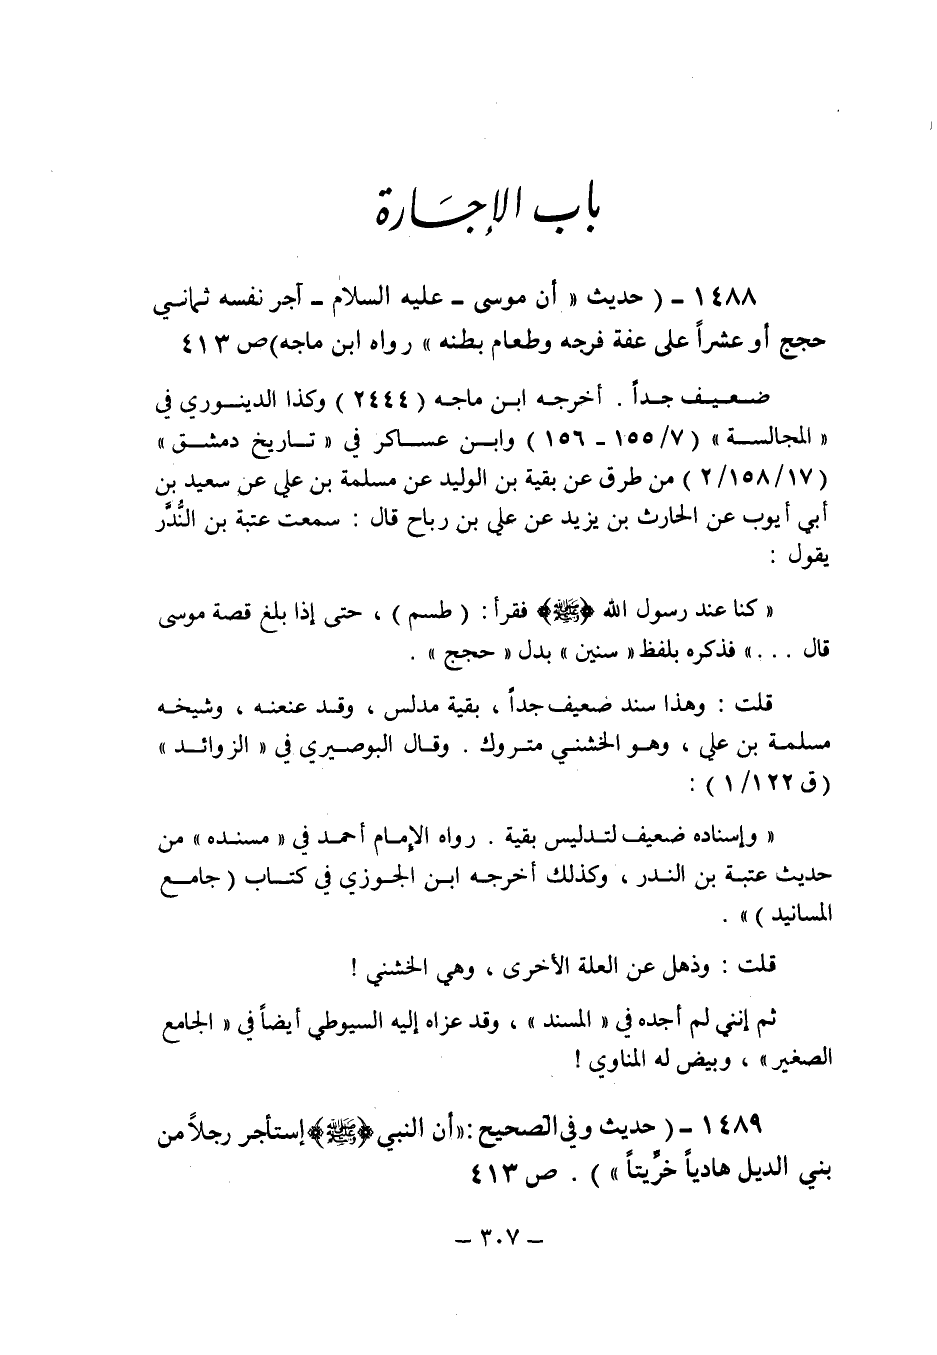 باب الإجَارة
١٤٨٨ - ( حديث « أن موسى - عليه السلام - آجر نفسه ثماني
حجج أو عشراً على عفة فرجه وطعام بطنه » رواه ابن ماجه)ص ٤١٣
ضعيف جداً . أخرجه ابن ماجه ( ٢٤٤٤ ) وكذا الدينوري في
« المجالسة » ( ٧/ ١٥٥ - ١٥٦ ) وابن عساكر في « تاريخ دمشق »
( ١٧/ ١٥٨/ ٢ ) من طرق عن بقية بن الوليد عن مسلمة بن علي عن سعيد بن
أبي أيوب عن الحارث بن يزيد عن علي بن رباح قال : سمعت عتبة بن النُّدَّر
يقول :
« كنا عند رسول الله ﴿ﷺ﴾ فقرأ : ( طسم ) ، حتى إذا بلغ قصة موسى
قال . . .» فذكره بلفظ « سنين » بدل « حجج » .
قلت : وهذا سند ضعيف جداً ، بقية مدلس ، وقد عنعنه ، وشيخه
مسلمة بن علي ، وهو الخشني متروك . وقال البوصيري في « الزوائد »
( ق ١٢٢/ ١ ) :
« وإسناده ضعيف لتدليس بقية . رواه الإمام أحمد في « مسنده » من
حديث عتبة بن الندر ، وكذلك أخرجه ابن الجوزي في كتاب ( جامع
المسانيد ) » .
قلت : وذهل عن العلة الأخرى ، وهي الخشني !
ثم إنني لم أجده في « المسند » ، وقد عزاه إليه السيوطي أيضاً في « الجامع
الصغير» ، وبيض له المناوي !
١٤٨٩ - ( حديث وفي الصحيح :«أن النبي ﴿ﷺ﴾ إستأجر رجلاً من
بني الديل هادياً خرِّيتاً » ) . ص ٤١٣
- ٣٠٧ -